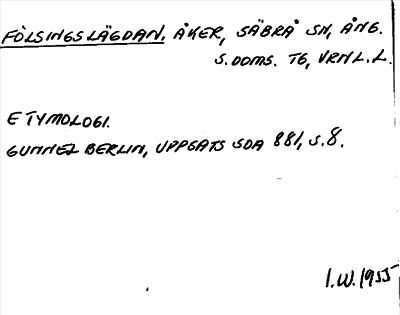 FÖLSINGSLÄGDAN. ÅKER, SÄBRÅ SN, ÅNG.
S. DOMS. TG, VRNL.L.
ETYMOLOGI.
GUNNEL BERLIN, UPPSATS SOA 881, S. 8.
I.W. 1955